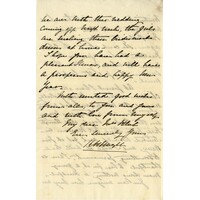 we are with this wedding
coming off next week, the girls
are making their bridesmaids
dresses at home.
I hope you have had a
pleasant Xmas, and will have
a prosperous and happy New
Year.
With united good wishes
from all to you and yours
and with love from myself
My dear Mrs
Ever sincerely Yours